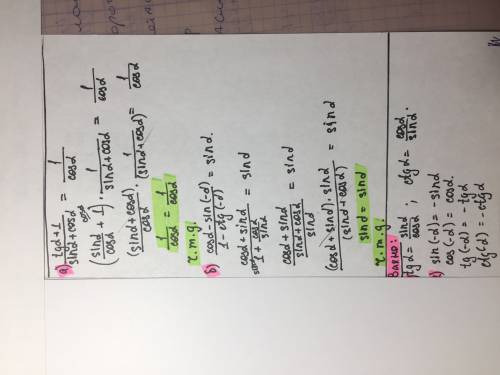 а) (tgα+1)/(sinα+cosα) = 1/cosα
(sinα/cosα + 1^cosα) · 1/(sinα+cosα) = 1/cosα
(sinα+cosα)/cosα · 1/(sinα+cosα) = 1/cosα
1/cosα = 1/cosα
ч.т.д.
б) (cosα-sin(-α))/(1-ctg(-α)) = sinα.
(cosα+sinα)/(^sinα 1+cosα/sinα) = sinα
(cosα+sinα)/((sinα+cosα)/sinα) = sinα
((cosα+sinα)·sinα)/(sinα+cosα) = sinα
sinα = sinα
ч.т.д.
Важно:
tgα = sinα/cosα ; ctgα = cosα/sinα.
sin(-α) = -sinα
cos(-α) = cosα.
tg(-α) = -tgα
ctg(-α) = -ctgα